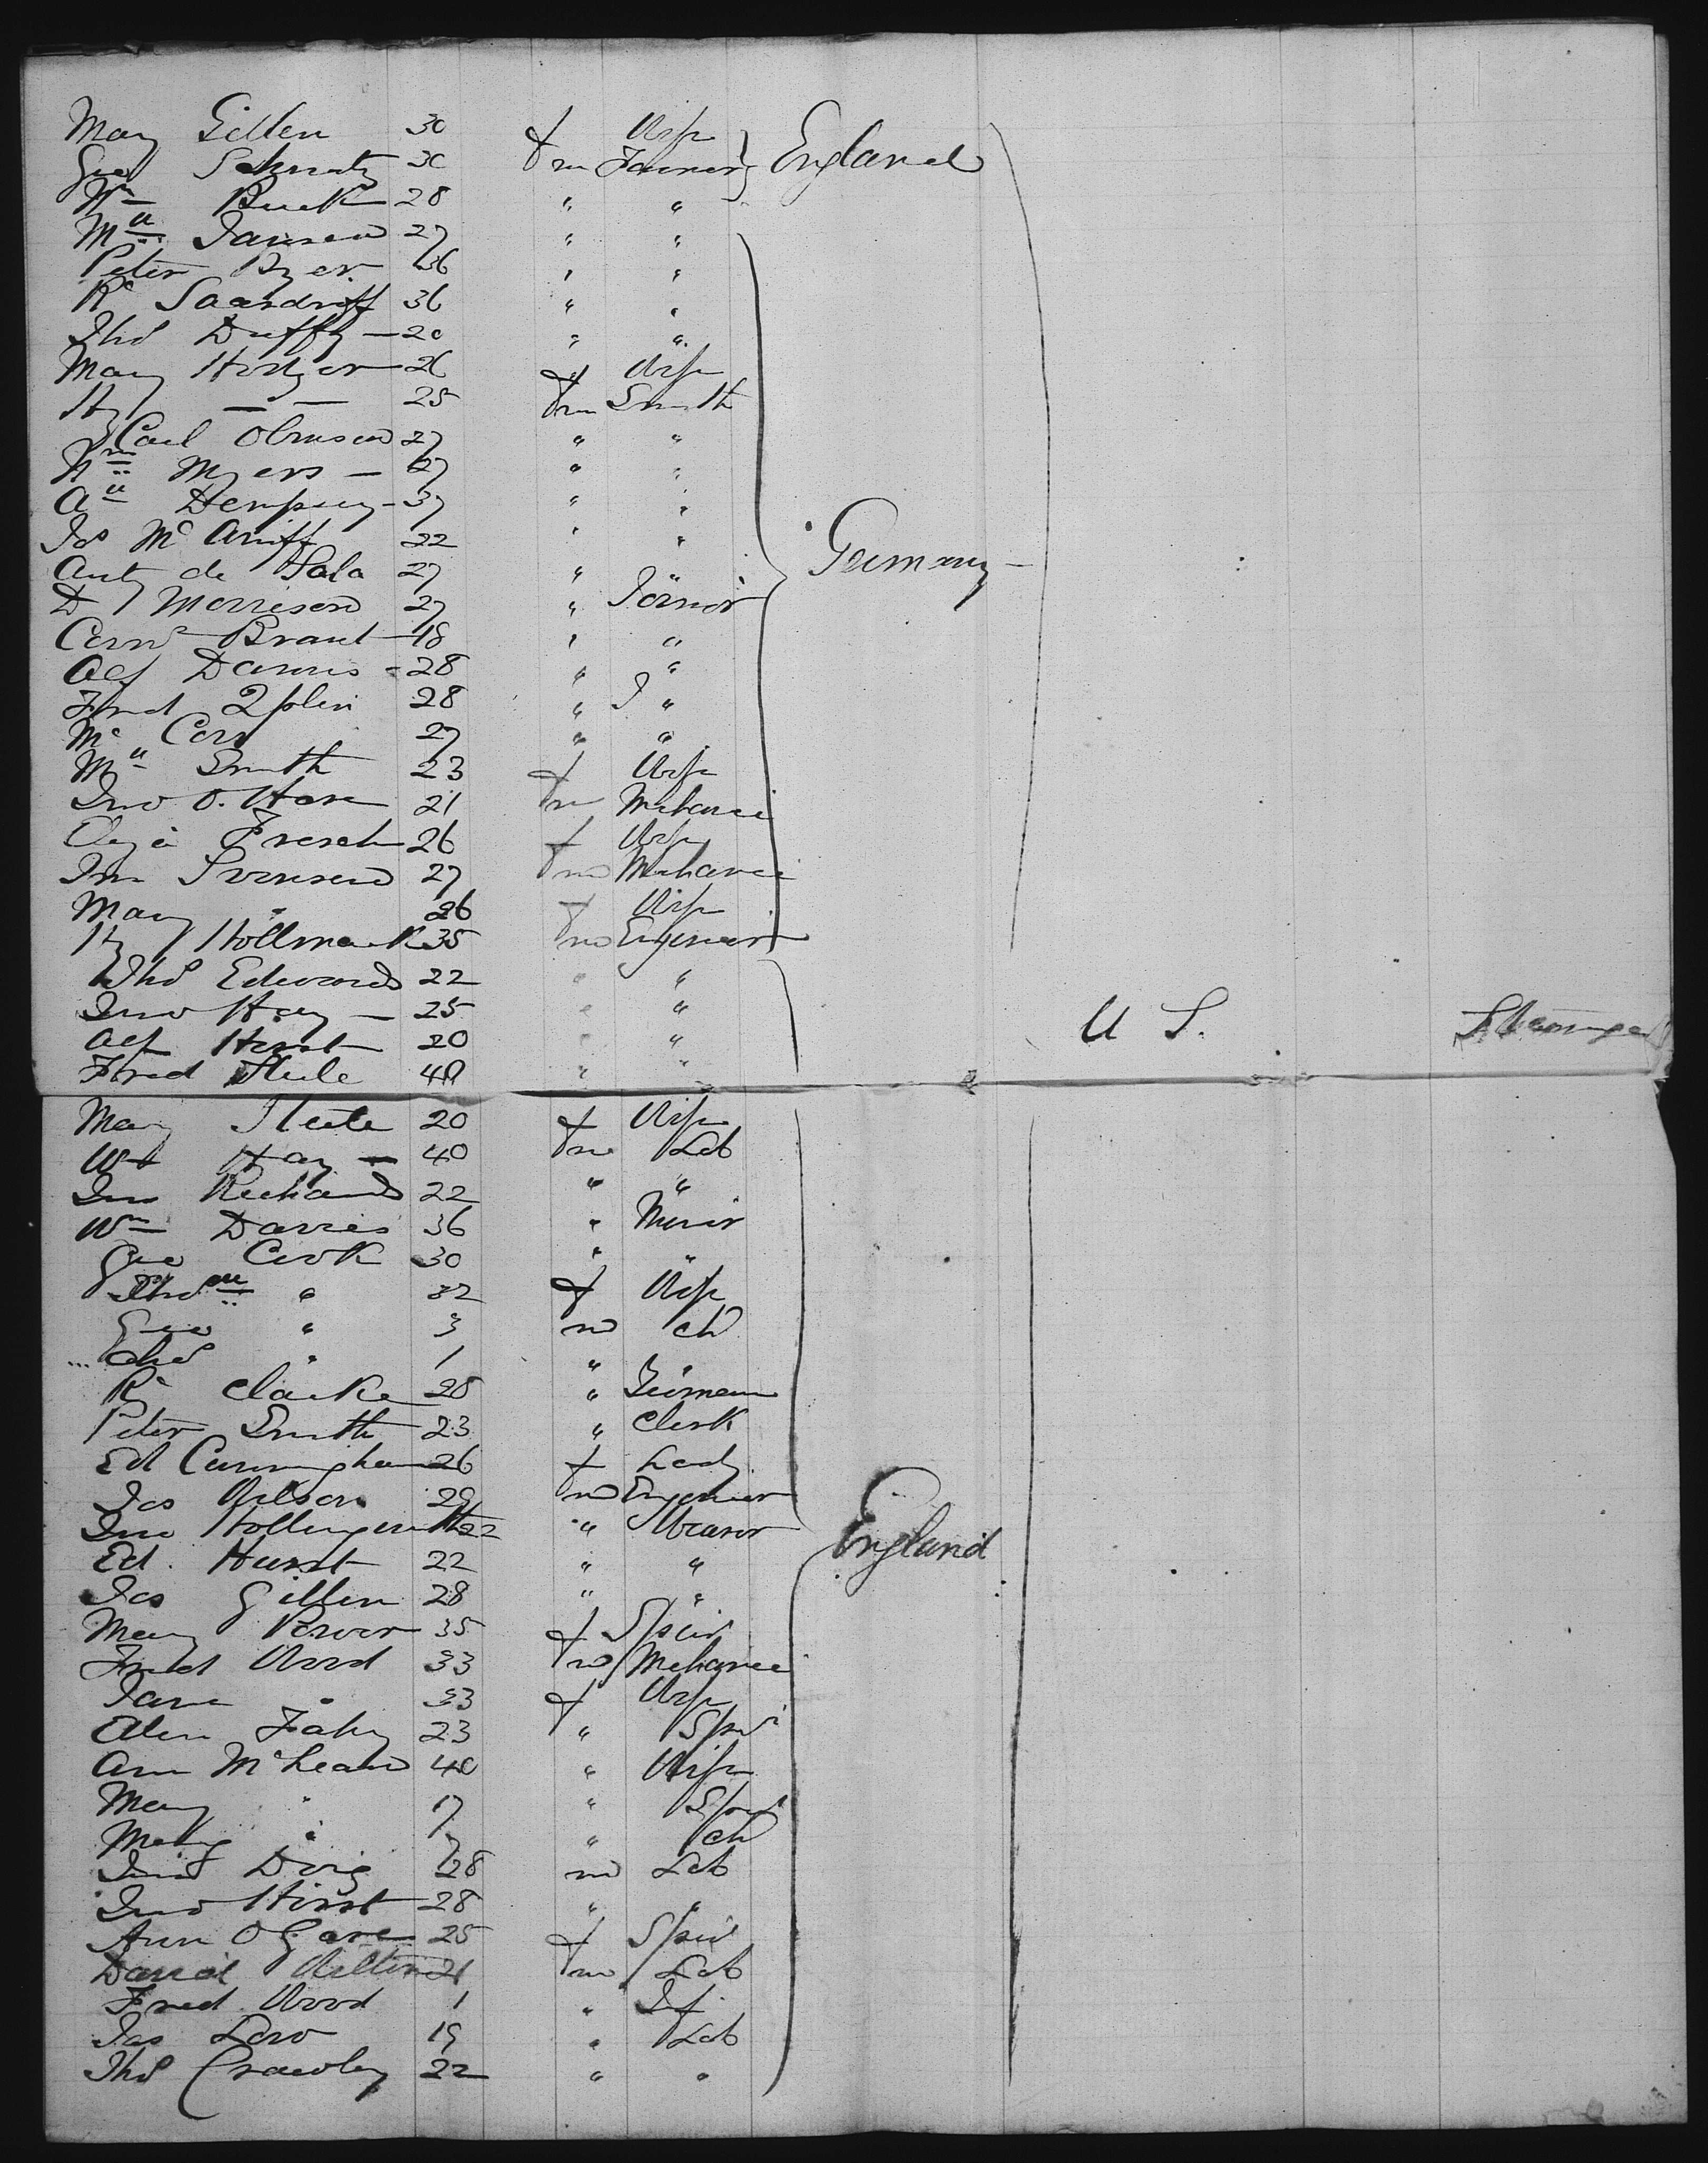 Mary Gillen 30 f Wife
Geo Schmitz 30 m Farmer England
Wm Buck 28 " "
Mra Jansen 27 " "
Peter Byer 36 " "
Rd 36 " "
Thos Duffy 20 " "
Mary Hodger 26 f Wife
Hy — — 25 m Smith
Carl 27 " "
Myers 27 " "
Dempsey 37 " "
Jas Mc 22 " "
Anty de Sala 27 " " Germany
D Morrison 27 " Joiner
Brant 18 " "
Alf Dannis 28 " "
Fred 28 " "
Mc Carr 27 " "
Smith 23 f Wife
Jno O. Hare 21 m Mechanic
26 f Wife
Jno Svensen 27 m Mechanic
Mary " 26 f Wife
Hy Hollmark 35 m Engineer
Thos Edwards 22 " "
Jno Hay 25 " " U S. Steerage
Alf Hirst 20 " "
Fred Steele 40 " "
Mary Steele 20 f Wife
Wm Hay 40 m Lab
Jno Richards 22 " "
Wm Davies 36 " Miner
Geo Cook 30 " "
" 32 f Wife
Geo " 3 m Ch
Chas " 1 "
Rd Clarke 28 "
Peter Smith 23 " Clerk
Ed Cunningham 26 f Lady
Jas Wilson 29 m Engineer
Jno Hollingworth 22 " Weaver England
Ed. Hurst 22 " "
Jas Gillen 28 " "
Mary Power 35 f Spin
Fred Wood 33 m Mechanic
Jane " 33 f Wife
Ellen Fahy 23 " Spin
Ann McLean 40 " Wife
Mary " 17 " Spin
" 7 " Ch
Jno Doig 28 m Lab
Jno Hirst 28 " "
Ann OGare 25 f Spin
David 21 m Lab
Fred Wood 1 " Inf
Jas Low 19 " Lab
Thos Crawley 22 " "